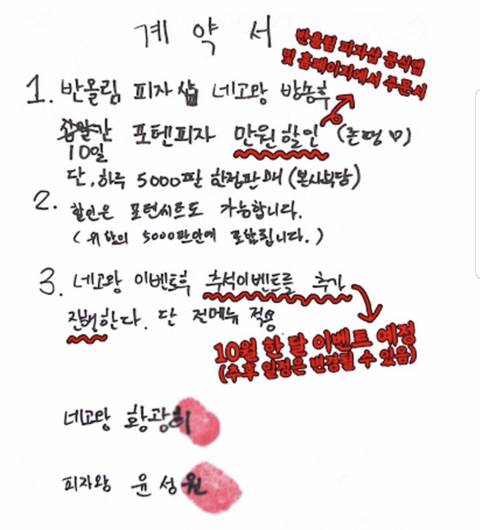 계약서
반올림 피자샵 공식앱
및 홈페이지에서 주문시
1. 반올림 피자샵 네고왕 방송후
10일 포텐피자 만원할인
단, 하루 5000판 한정판매 (본사부담)
2. 할인은 포텐시트도 가능합니다.
(위 할인 5000판안에 포함됩니다.)
3. 네고왕 이벤트후 추석이벤트를 추가
진행한다. 단 전메뉴 적용
10월 한 달 이벤트 예정
(추후 일정은 변경될 수 있음)
네고왕 황광희
피자왕 윤성원